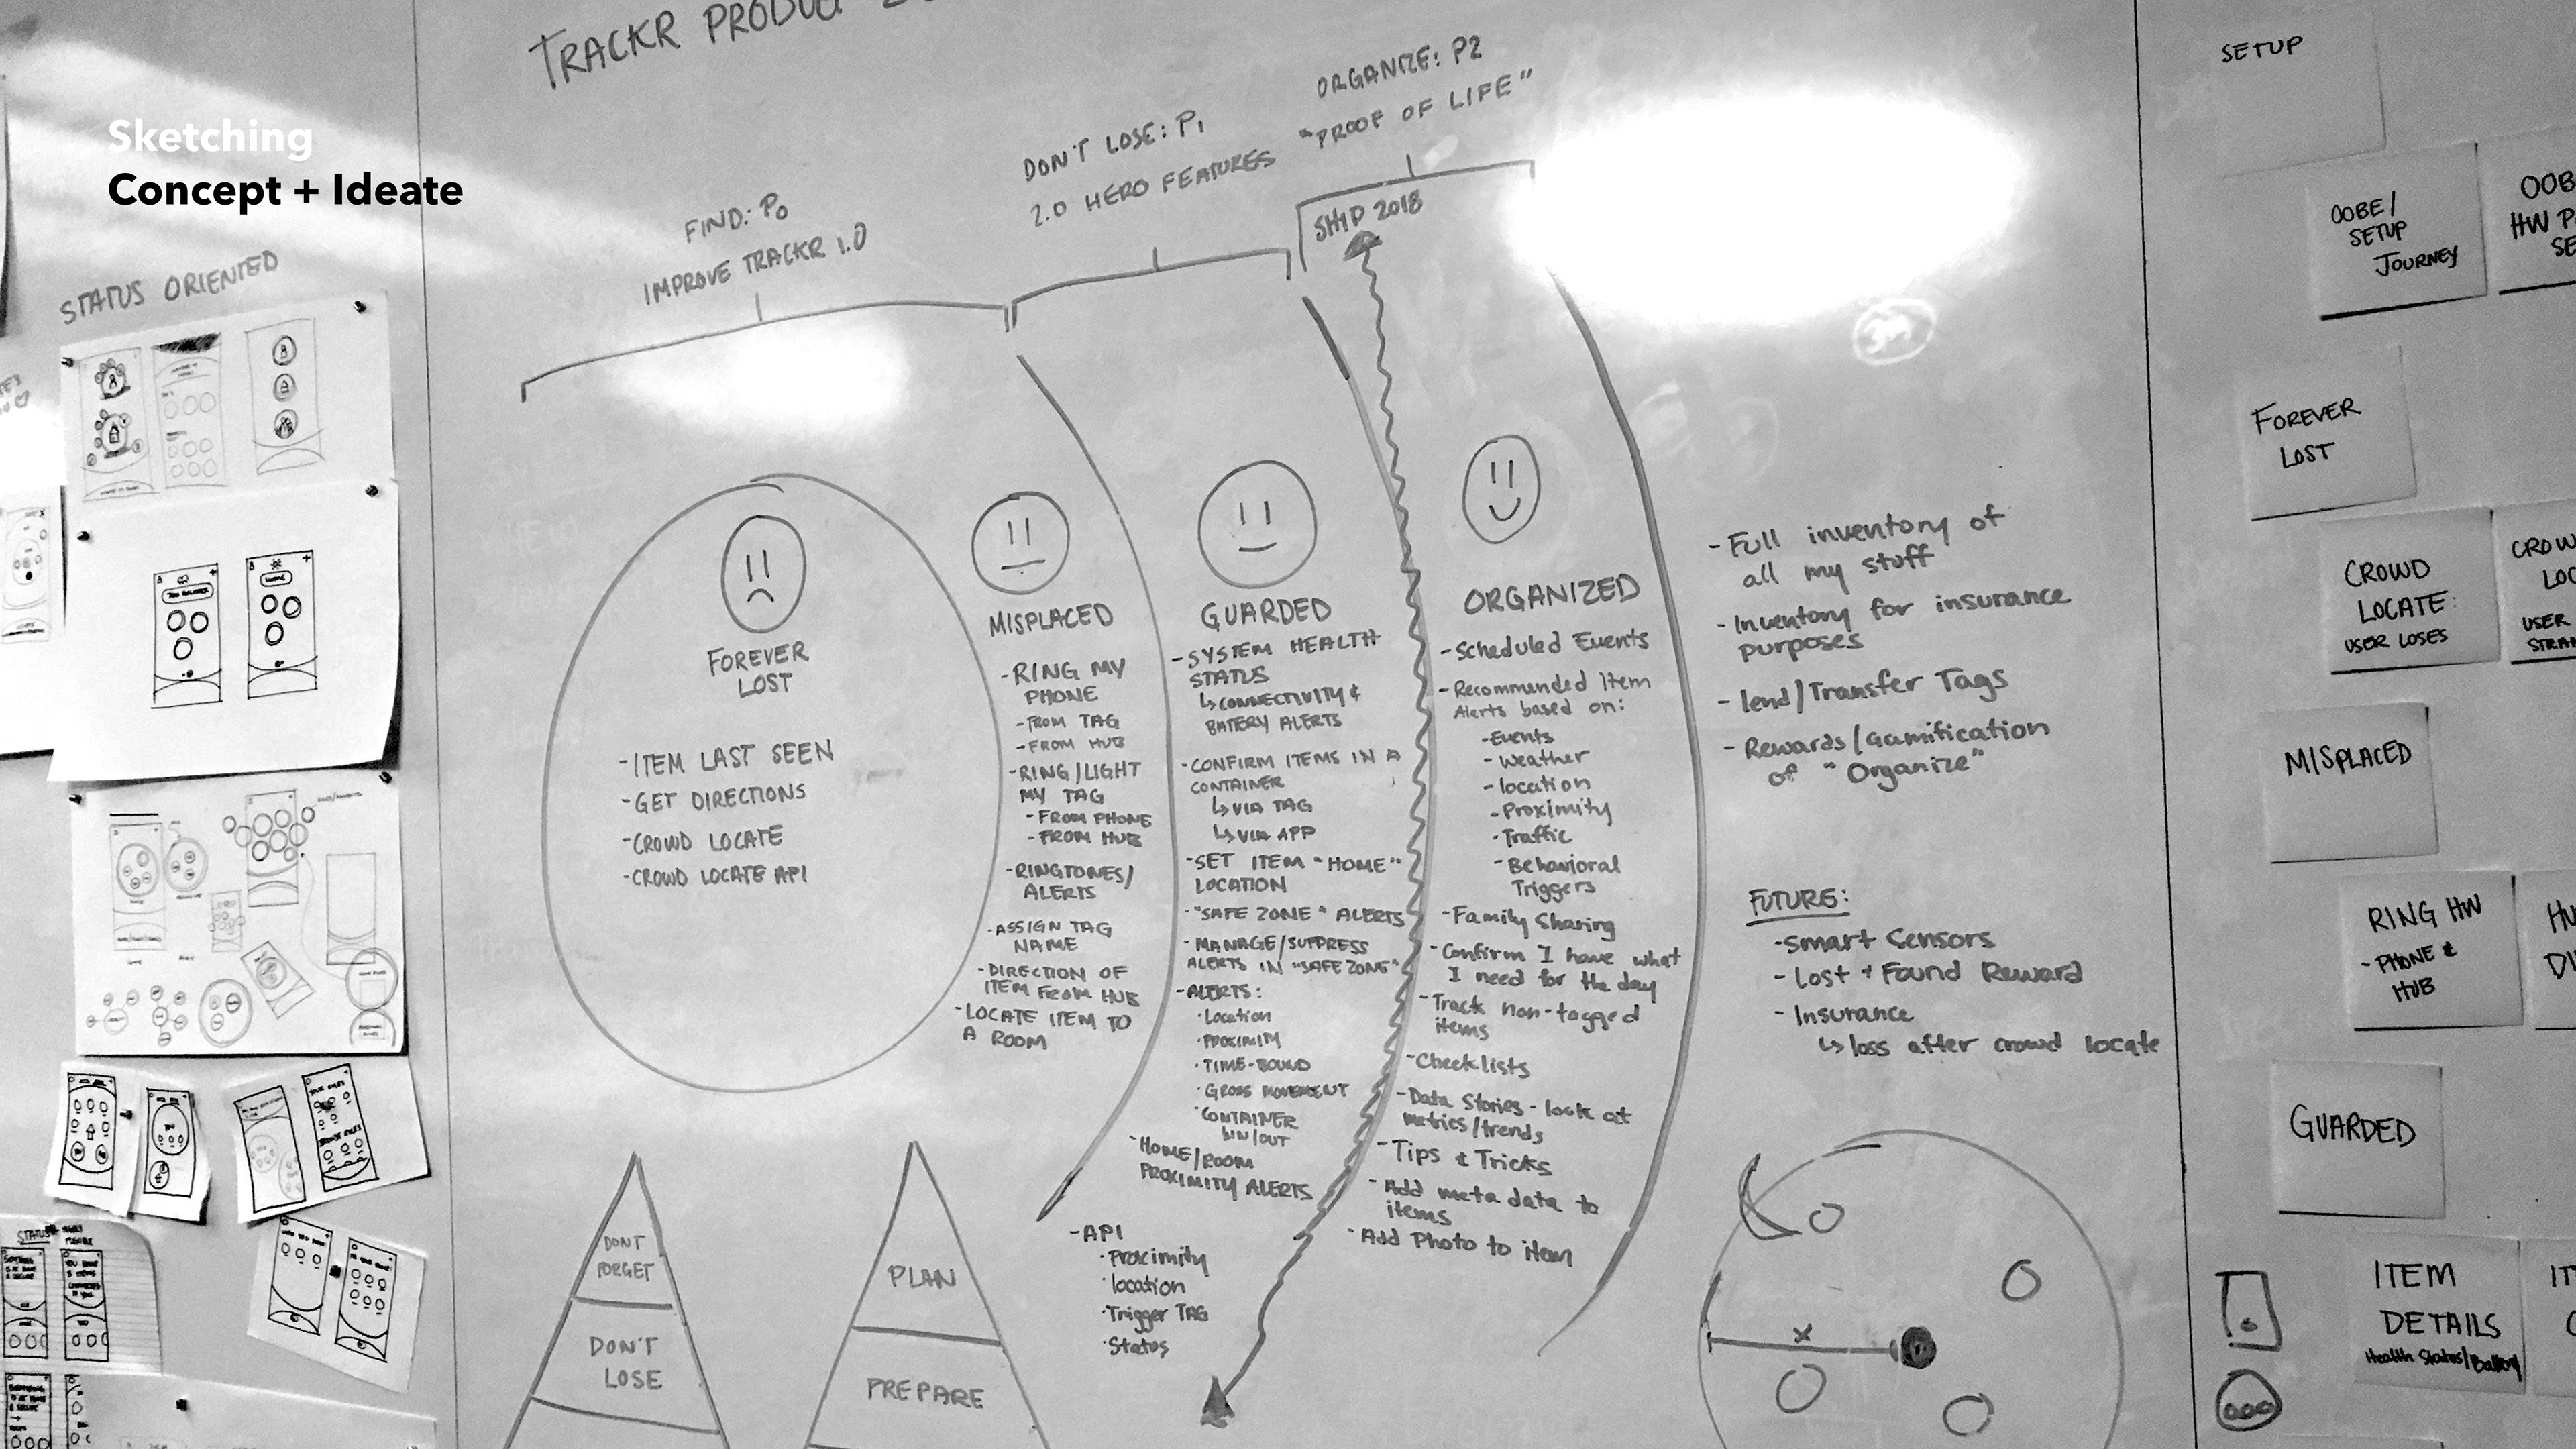 Sketching
Concept + Ideate
STATUS ORIENTED
TRACKR PRODUCT
FIND: P0
IMPROVE TRACKR 1.0
DON'T LOSE: P1
2.0 HERO FEATURES
ORGANIZE: P2
"PROOF OF LIFE"
SHIP 2018
FOREVER
LOST
-ITEM LAST SEEN
-GET DIRECTIONS
-CROWD LOCATE
-CROWD LOCATE API
MISPLACED
-RING MY
PHONE
-FROM TAG
-FROM HUB
-RING/LIGHT
MY TAG
-FROM PHONE
-FROM HUB
-RINGTONES/
ALERTS
-ASSIGN TAG
NAME
-DIRECTION OF
ITEM FROM HUB
-LOCATE ITEM TO
A ROOM
GUARDED
-SYSTEM HEALTH
STATUS
↳CONNECTIVITY &
BATTERY ALERTS
-CONFIRM ITEMS IN A
CONTAINER
↳VIA TAG
↳VIA APP
-SET ITEM "HOME"
LOCATION
-"SAFE ZONE" ALERTS
-MANAGE/SUPPRESS
ALERTS IN "SAFE ZONE"
-ALERTS:
·Location
·PROXIMITY
·TIME-BOUND
·GROSS MOVEMENT
·CONTAINER
IN/OUT
-HOME/ROOM
PROXIMITY ALERTS
-API
·Proximity
·location
·Trigger TAG
·Status
ORGANIZED
-Scheduled Events
-Recommended Item
Alerts based on:
-Events
-weather
-location
-Proximity
-Traffic
-Behavioral
Triggers
-Family Sharing
-Confirm I have what
I need for the day
-Track non-tagged
items
-Checklists
-Data Stories - look at
metrics/trends
-Tips & Tricks
-Add meta data to
items
-Add Photo to item
-Full inventory of
all my stuff
-Inventory for insurance
purposes
-lend/Transfer Tags
-Rewards/Gamification
of "Organize"
FUTURE:
-Smart Sensors
-Lost + Found Reward
-Insurance
↳loss after crowd locate
DONT
FORGET
DON'T
LOSE
PLAN
PREPARE
x
SETUP
OOBE/
SETUP
JOURNEY
FOREVER
LOST
CROWD
LOCATE:
USER LOSES
MISPLACED
RING HW
-PHONE &
HUB
GUARDED
ITEM
DETAILS
Health Status/Battery
STATUS